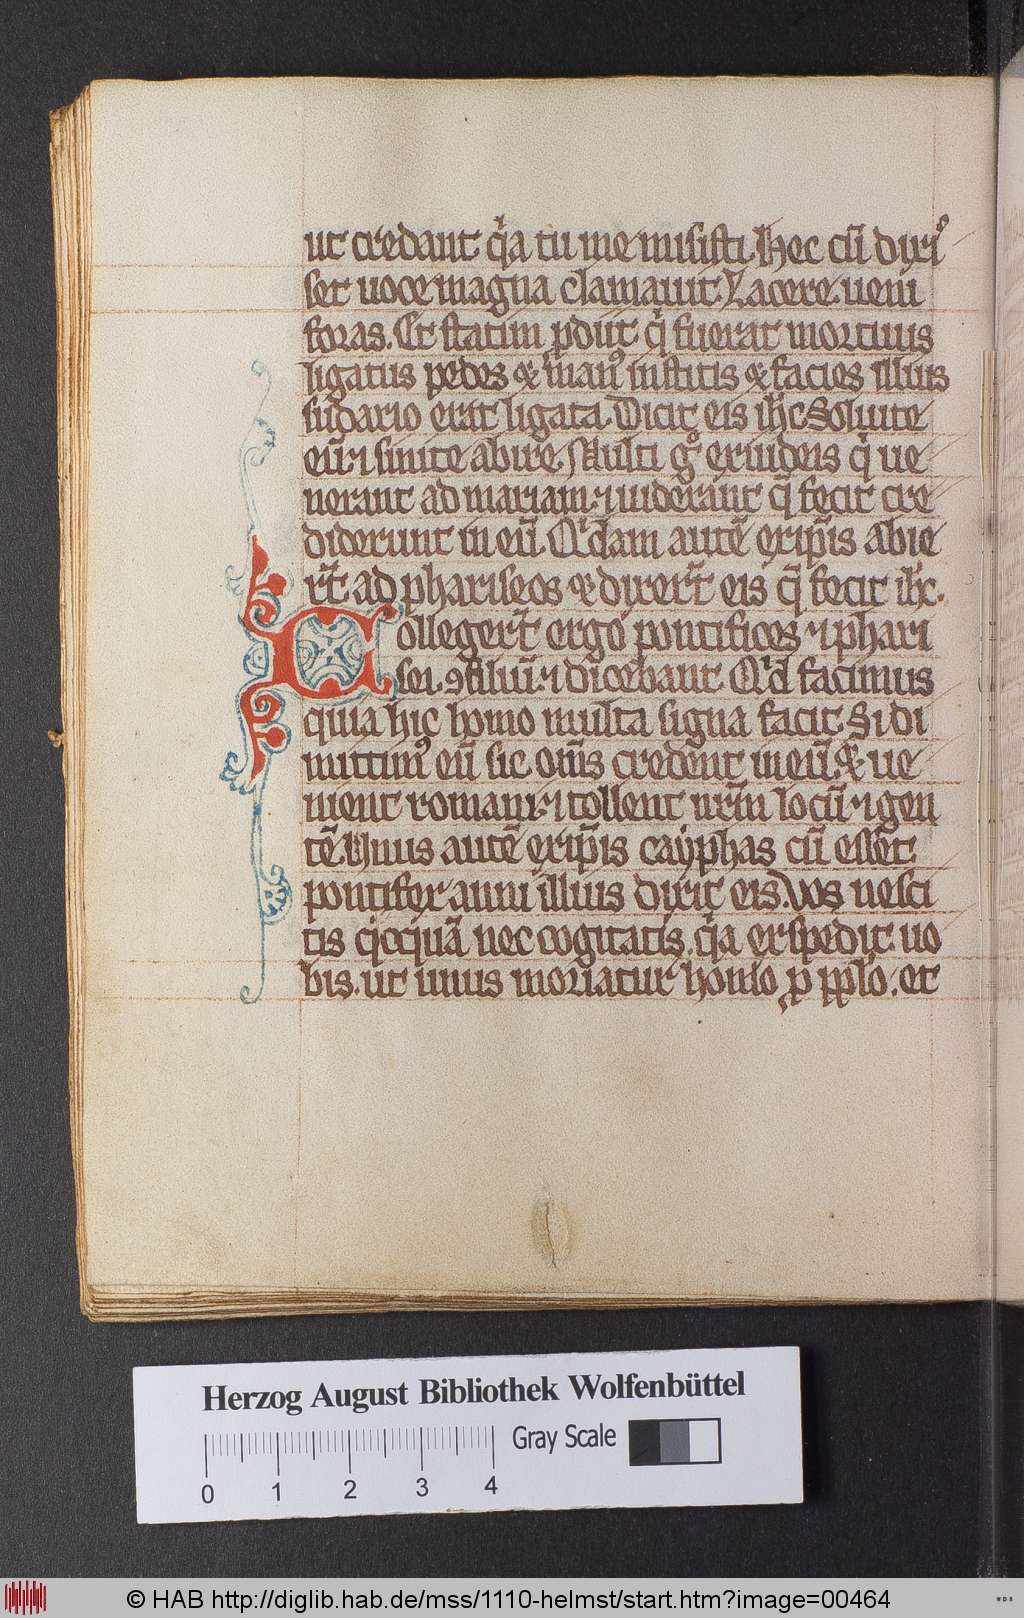 ut credant qͥa tu me misisti. Hec cū dixiˢ
set uoce magna clamauit. Lazere. ueni
foras. Et statim ꝓdiit qͥ fuerat mortuus
ligatus pedes & manꝰ institis & facies illius
sudario erat ligata. Dicit eis ihc̄. Soluite
eū. ⁊ sinite abire. Multi gͦ exiudeis qͥ ue
nerant ad mariam. ⁊ uiderant q̄ fecit cre
diderunt in eū. Qͥdam autē exip̄is abie
rt̄ ad phariseos & dixert̄ eis q̄ fecit ihc̄.
Collegert̄ ergo pontifices ⁊ phari
sei. ꝯsiliū. ⁊ dicebant. Qͥd facimus
quia hic homo multa signa facit. Si di
mittimꝰ eū sic. om̄s credent in eū. & ue
nient romani. ⁊ tollent nr̄m locū. ⁊ gen
tē. Vnus autē exip̄is cayphas cū esset
pontifex anni illius dixit eis. Vos nesci
tis qͥcquā nec cogitatis. qͥa exspedit uo
bis. ut unus moriatur homo ꝓ pplō. et
Herzog August Bibliothek Wolfenbüttel
Gray Scale
0 1 2 3 4
© HAB http://diglib.hab.de/mss/1110-helmst/start.htm?image=00464